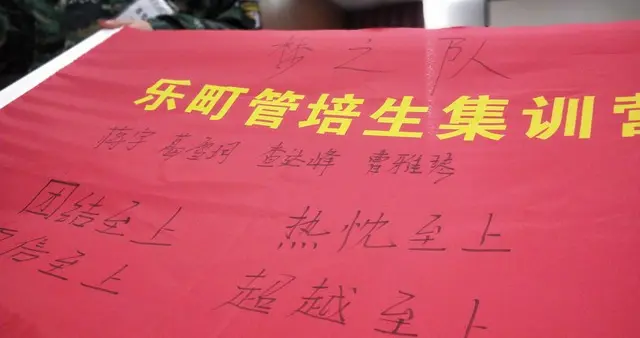 梦之队
乐町管培生集训营
陈宇 葛雪珂 查达峰 曹雅琴
团结至上 热忱至上
信至上 超越至上